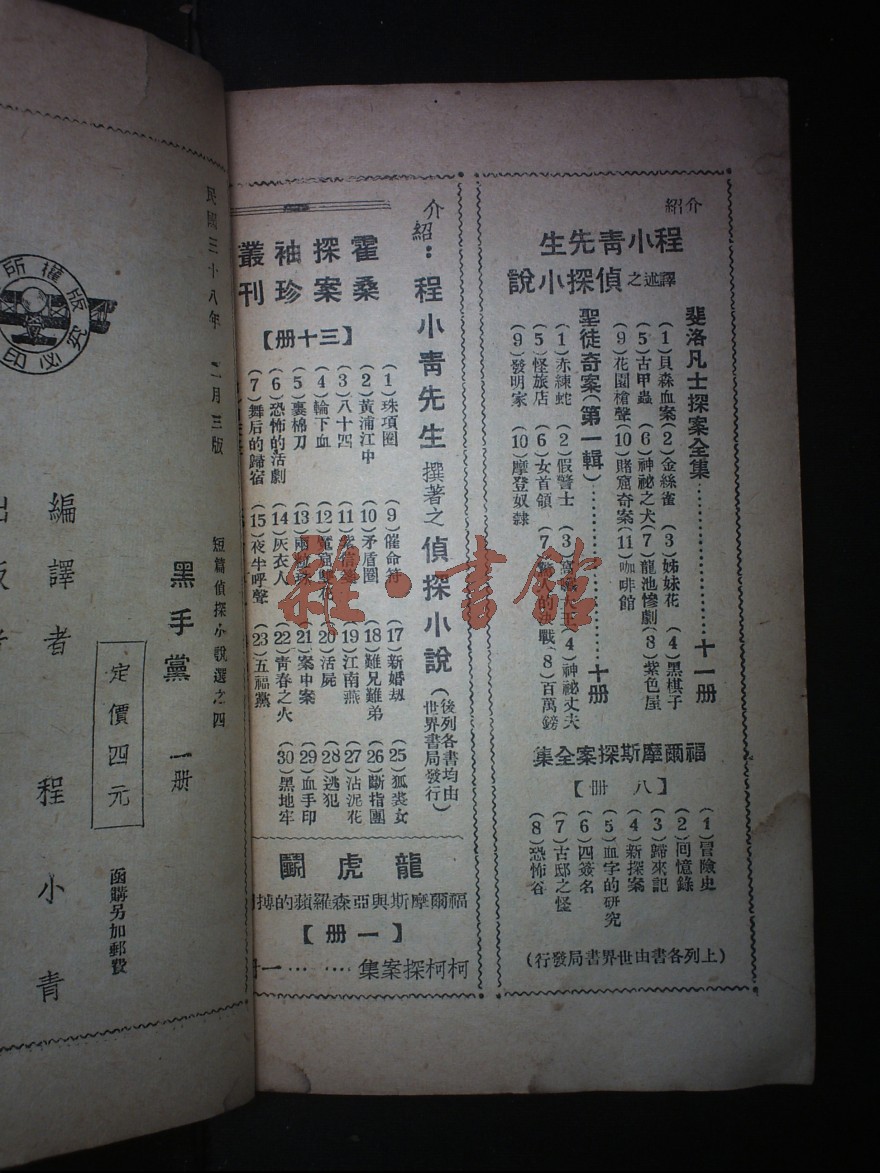 介紹
程小青先生
譯述之偵探小說
斐洛凡士探案全集………………十一册
(1)貝森血案(2)金絲雀(3)姊妹花(4)黑棋子
(5)古甲蟲(6)神祕之犬(7)龍池慘劇(8)紫色屋
(9)花園槍聲(10)賭窟奇案(11)咖啡館
聖徒奇案(第一輯)………………十册
(1)赤練蛇(2)假警士(3)(4)神祕丈夫
(5)怪旅店(6)女首領(7)人的決戰(8)百萬鎊
(9)發明家(10)摩登奴隸
福爾摩斯探案全集
【八册】
(1)冒險史
(2)回憶錄
(3)歸來記
(4)新探案
(5)血字的研究
(6)四簽名
(7)古邸之怪
(8)恐怖谷
(上列各書由世界書局發行)
介紹：程小青先生撰著之偵探小說(後列各書均由世界書局發行)
霍桑探案袖珍叢刊
【三十册】
(1)珠項圈
(2)黃浦江中
(3)八十四
(4)輪下血
(5)裹棉刀
(6)恐怖的活劇
(7)舞后的歸宿
(9)催命符
(10)矛盾圈
(11)紫信箋
(12)魔窟雙花
(13)兩粒珠
(14)灰衣人
(15)夜半呼聲
(17)新婚劫
(18)難兄難弟
(19)江南燕
(20)活屍
(21)案中案
(22)青春之火
(23)五福黨
(25)狐裘女
(26)斷指團
(27)沾泥花
(28)逃犯
(29)血手印
(30)黑地牢
龍虎鬭
福爾摩斯與亞森羅蘋的搏
【一册】
柯柯探案集………一
民國三十八年 二月三版
短篇偵探小說選之四
黑手黨 一册
定價四元
函購另加郵費
編譯者 程小青
出版者
版權所有
翻印必究
雜·書館